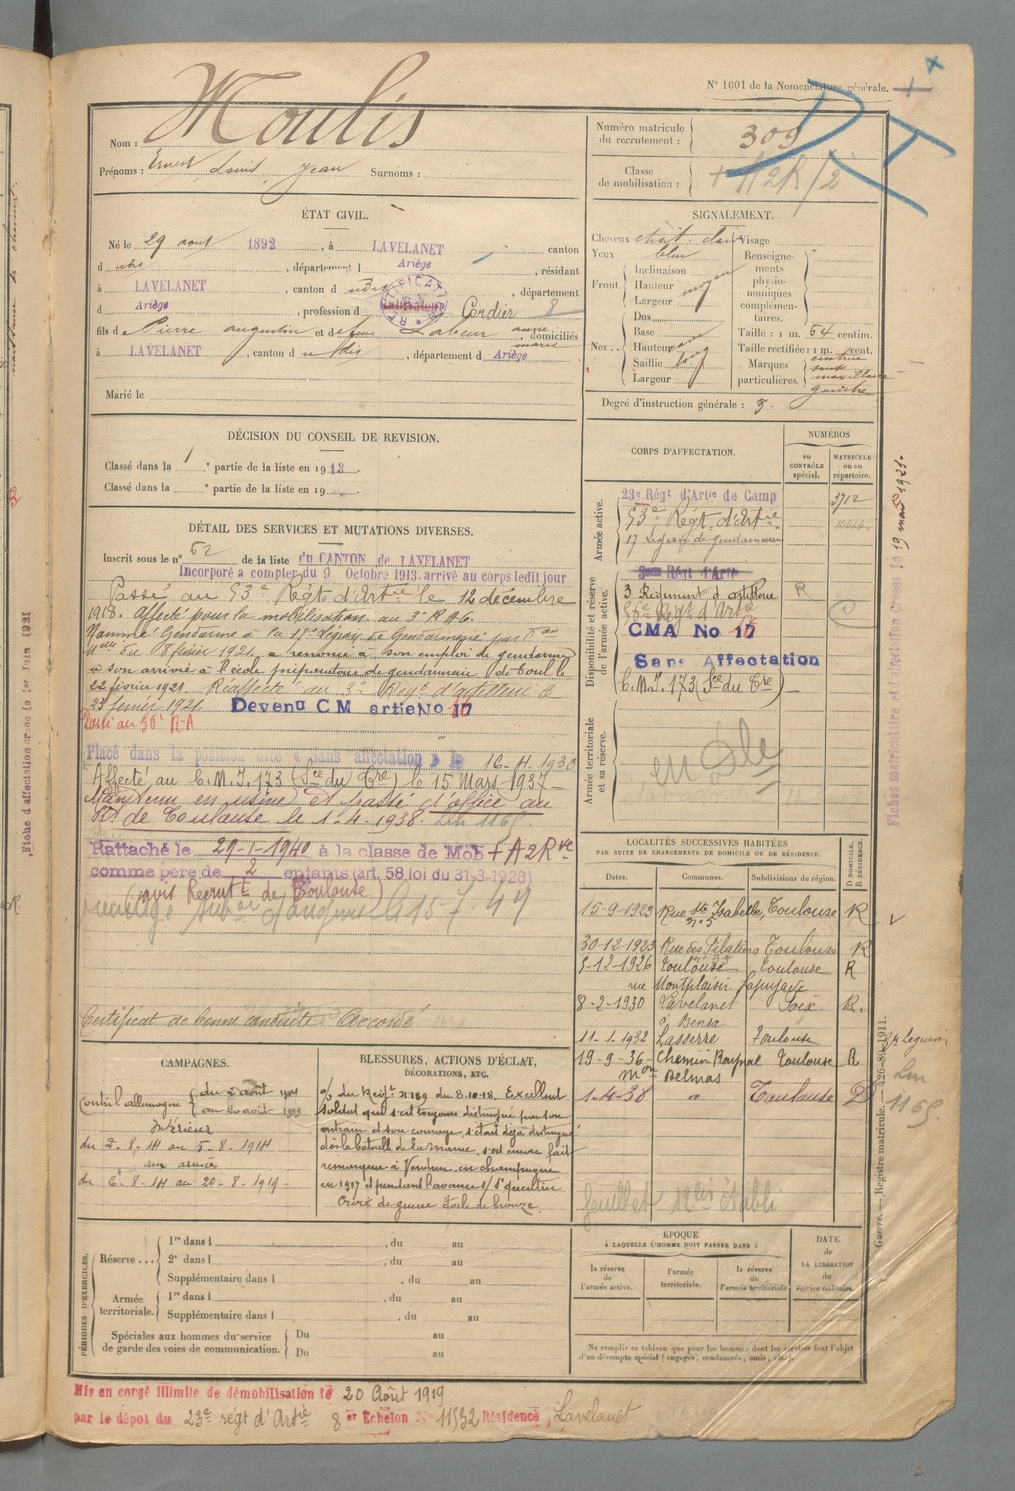 N° 1001 de la Nomenclature générale.
Nom : Moulis
Prénoms : Ernest Louis Jean Surnoms :
Numéro matricule du recrutement : 309
Classe de mobilisation : + A2R/2
ÉTAT CIVIL.
Né le 29 aout 1892, à LAVELANET canton
d udis, département d Ariège, résidant
à LAVELANET, canton d udis, département
d Ariège, profession d Cordier 8
fils de Pierre augustin et de feue Labeur anne marie, domiciliés
à LAVELANET, canton d udis, département d Ariège
Marié le
SIGNALEMENT.
Cheveux chat. clair Visage
Yeux bleu
Front. Inclinaison
Hauteur moyen
Largeur
Nez. Dos
Base
Hauteur
Saillie
Largeur
Renseignements physionomiques complémentaires.
Taille : 1 m. 64 centim.
Taille rectifiée : 1 m. cent.
Marques particulières.
maxillaire
gauche
Degré d'instruction générale : 3.
DÉCISION DU CONSEIL DE REVISION.
Classé dans la 1e partie de la liste en 1913.
Classé dans la e partie de la liste en 19
CORPS D'AFFECTATION.
NUMÉROS
au CONTRÔLE spécial.
MATRICULE ou au répertoire.
Armée active.
23e Régt d'Artie de Camp 3712
53e Régt d'Artie
17 Légion de gendarmerie
Disponibilité et réserve de l'armée active.
3 Régiment d'artillerie R
56e Regt d'Artie
CMA No 17
Sans Affectation
C.M.I. 173 (Son du Tre)
Armée territoriale et sa réserve.
en Dle
DÉTAIL DES SERVICES ET MUTATIONS DIVERSES.
Inscrit sous le n° 62 de la liste du CANTON de LAVELANET
Incorporé a compter du 9 Octobre 1913. arrivé au corps ledit jour
Passé au 53e Régt d'Artie le 12 décembre
1918. Affecté pour la mobilisation au 3e R A C.
Nommé Gendarme à la 17e Légion de Gendarmerie par
du 8 février 1921, a renoncé à son emploi de gendarme
à son arrivée à l'école préparatoire de gendarmerie de Toul le
22 février 1921. Réaffecté au 3e Regt d'artillerie le
23 février 1921. Devenu C M artie No 17
Passé au 56e R-A
Placé dans la position dite « Sans affectation » le 16-4-1930
Affecté au C.M.I. 173 (Son du Tre) le 15 Mars 1937
Maintenu en usine et passé d'office au
Rt de Toulouse le 1-4-1938. Lm 1169.
Rattaché le 29-1-1940 à la classe de Mob + A2Rve
comme père de 2 enfants (art. 58 loi du 31-3-1928)
(avis Recrutt de Toulouse)
15-7-49
Certificat de bonne conduite : Accordé
LOCALITÉS SUCCESSIVES HABITÉES
PAR SUITE DE CHANGEMENTS DE DOMICILE OU DE RÉSIDENCE.
Dates. Communes. Subdivisions de région. D DOMICILE. R RÉSIDENCE.
15-9-1923 Rue Ste Isabelle, n° 5 Toulouse R
30-12-1923 Rue des Filatiers Toulouse R
5-12-1926 Toulouse Toulouse R
rue Montplaisir Lapujade
8-2-1930 Lavelanet Foix R.
à Bensa
11-1-1932 Lasserre Toulouse
19-9-36 Chemin Raynal Toulouse R
Mon Delmas
1-4-38 " Toulouse D
feuillet établi
CAMPAGNES.
Contre l'allemagne du 2 août 1914
au 20 août 1919
Intérieur
du 2-8-14 au 5-8-1914
aux armées
du 6-8-14 au 20-8-1919
BLESSURES, ACTIONS D'ÉCLAT,
DÉCORATIONS, ETC.
O/ du Régt n° 189 du 8.10.18. Excellent
soldat qui s'est toujours distingué par son
entrain et son courage, s'était déjà distingué
dès la bataille de la marne, s'est encore fait
remarquer à Verdun, en champagne
en 1917 et pendant l'avance s/ St quentin
Croix de guerre étoile de bronze.
PÉRIODES D'EXERCICES.
Réserve... 1re dans l , du au
2e dans l , du au
Supplémentaire dans l , du au
Armée territoriale. 1re dans l , du au
Supplémentaire dans l , du au
Spéciales aux hommes du service de garde des voies de communication. Du au
Du au
ÉPOQUE
À LAQUELLE L'HOMME DOIT PASSER DANS :
la réserve de l'armée active.
l'armée territoriale.
la réserve de l'armée territoriale.
DATE de LA LIBÉRATION du service militaire.
Ne remplir ce tableau que pour les hommes dont les services font l'objet
d'un décompte spécial (engagés, condamnés, omis, etc.).
Mis en congé illimité de démobilisation le 20 Août 1919
par le dépôt du 23e régt d'Artie 8e Echelon N° 11532 Résidence, Lavelanet
Fiches matriculaire et d'affectation créées le 19 mars 1921.
Guerre. — Registre matricule. — 426-89-1911.
Lm
1169
Fiche d'affectation créée le 1er Juin 1921